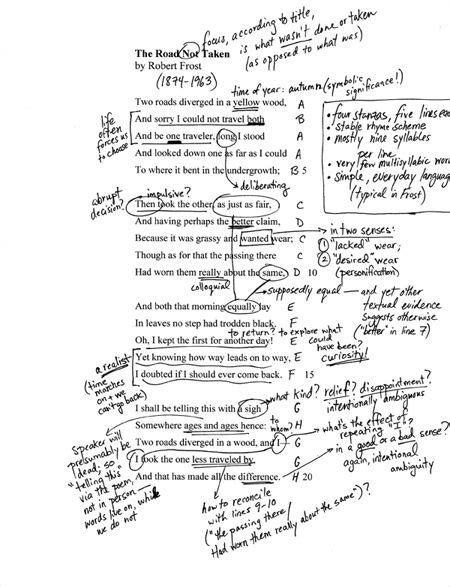 focus, according to title,
is what wasn't done or taken
(as opposed to what was)
The Road Not Taken
by Robert Frost
(1874-1963)
time of year: autumn (symbolic
significance!)
Two roads diverged in a yellow wood, A
And sorry I could not travel both B
And be one traveler, long I stood A
And looked down one as far as I could A
To where it bent in the undergrowth; B 5
life
often
forces us
to choose
• four stanzas, five lines
• stable rhyme scheme
• mostly nine syllables
per line
• very few multisyllabic
• simple, everyday language
(typical in Frost)
deliberating
abrupt
decision?
impulsive?
Then took the other, as just as fair, C
And having perhaps the better claim, D
Because it was grassy and wanted wear; C
Though as for that the passing there C
Had worn them really about the same, D 10
in two senses:
1 "lacked" wear;
2 "desired" wear
(personification)
colloquial
supposedly equal — and yet other
textual evidence
suggests otherwise
("better" in line 7)
And both that morning equally lay E
In leaves no step had trodden black. F
Oh, I kept the first for another day! E
Yet knowing how way leads on to way, E
I doubted if I should ever come back. F 15
to return? to explore what
could
have been?
curiosity!
a realist
(time
marches
on + we
can't go back)
what kind? relief? disappointment?
intentionally ambiguous
I shall be telling this with a sigh G
Somewhere ages and ages hence: H
Two roads diverged in a wood, and I— G
I took the one less traveled by, G
And that has made all the difference. H 20
to
whom?
what's the effect of
repeating "I"?
in a good or a bad sense?
again, intentional
ambiguity
speaker will
presumably be
dead; so
"telling this"
via the poem,
not in person —
words live on, while
we do not
how to reconcile
with lines 9-10
("the passing there /
Had worn them really about the same")?